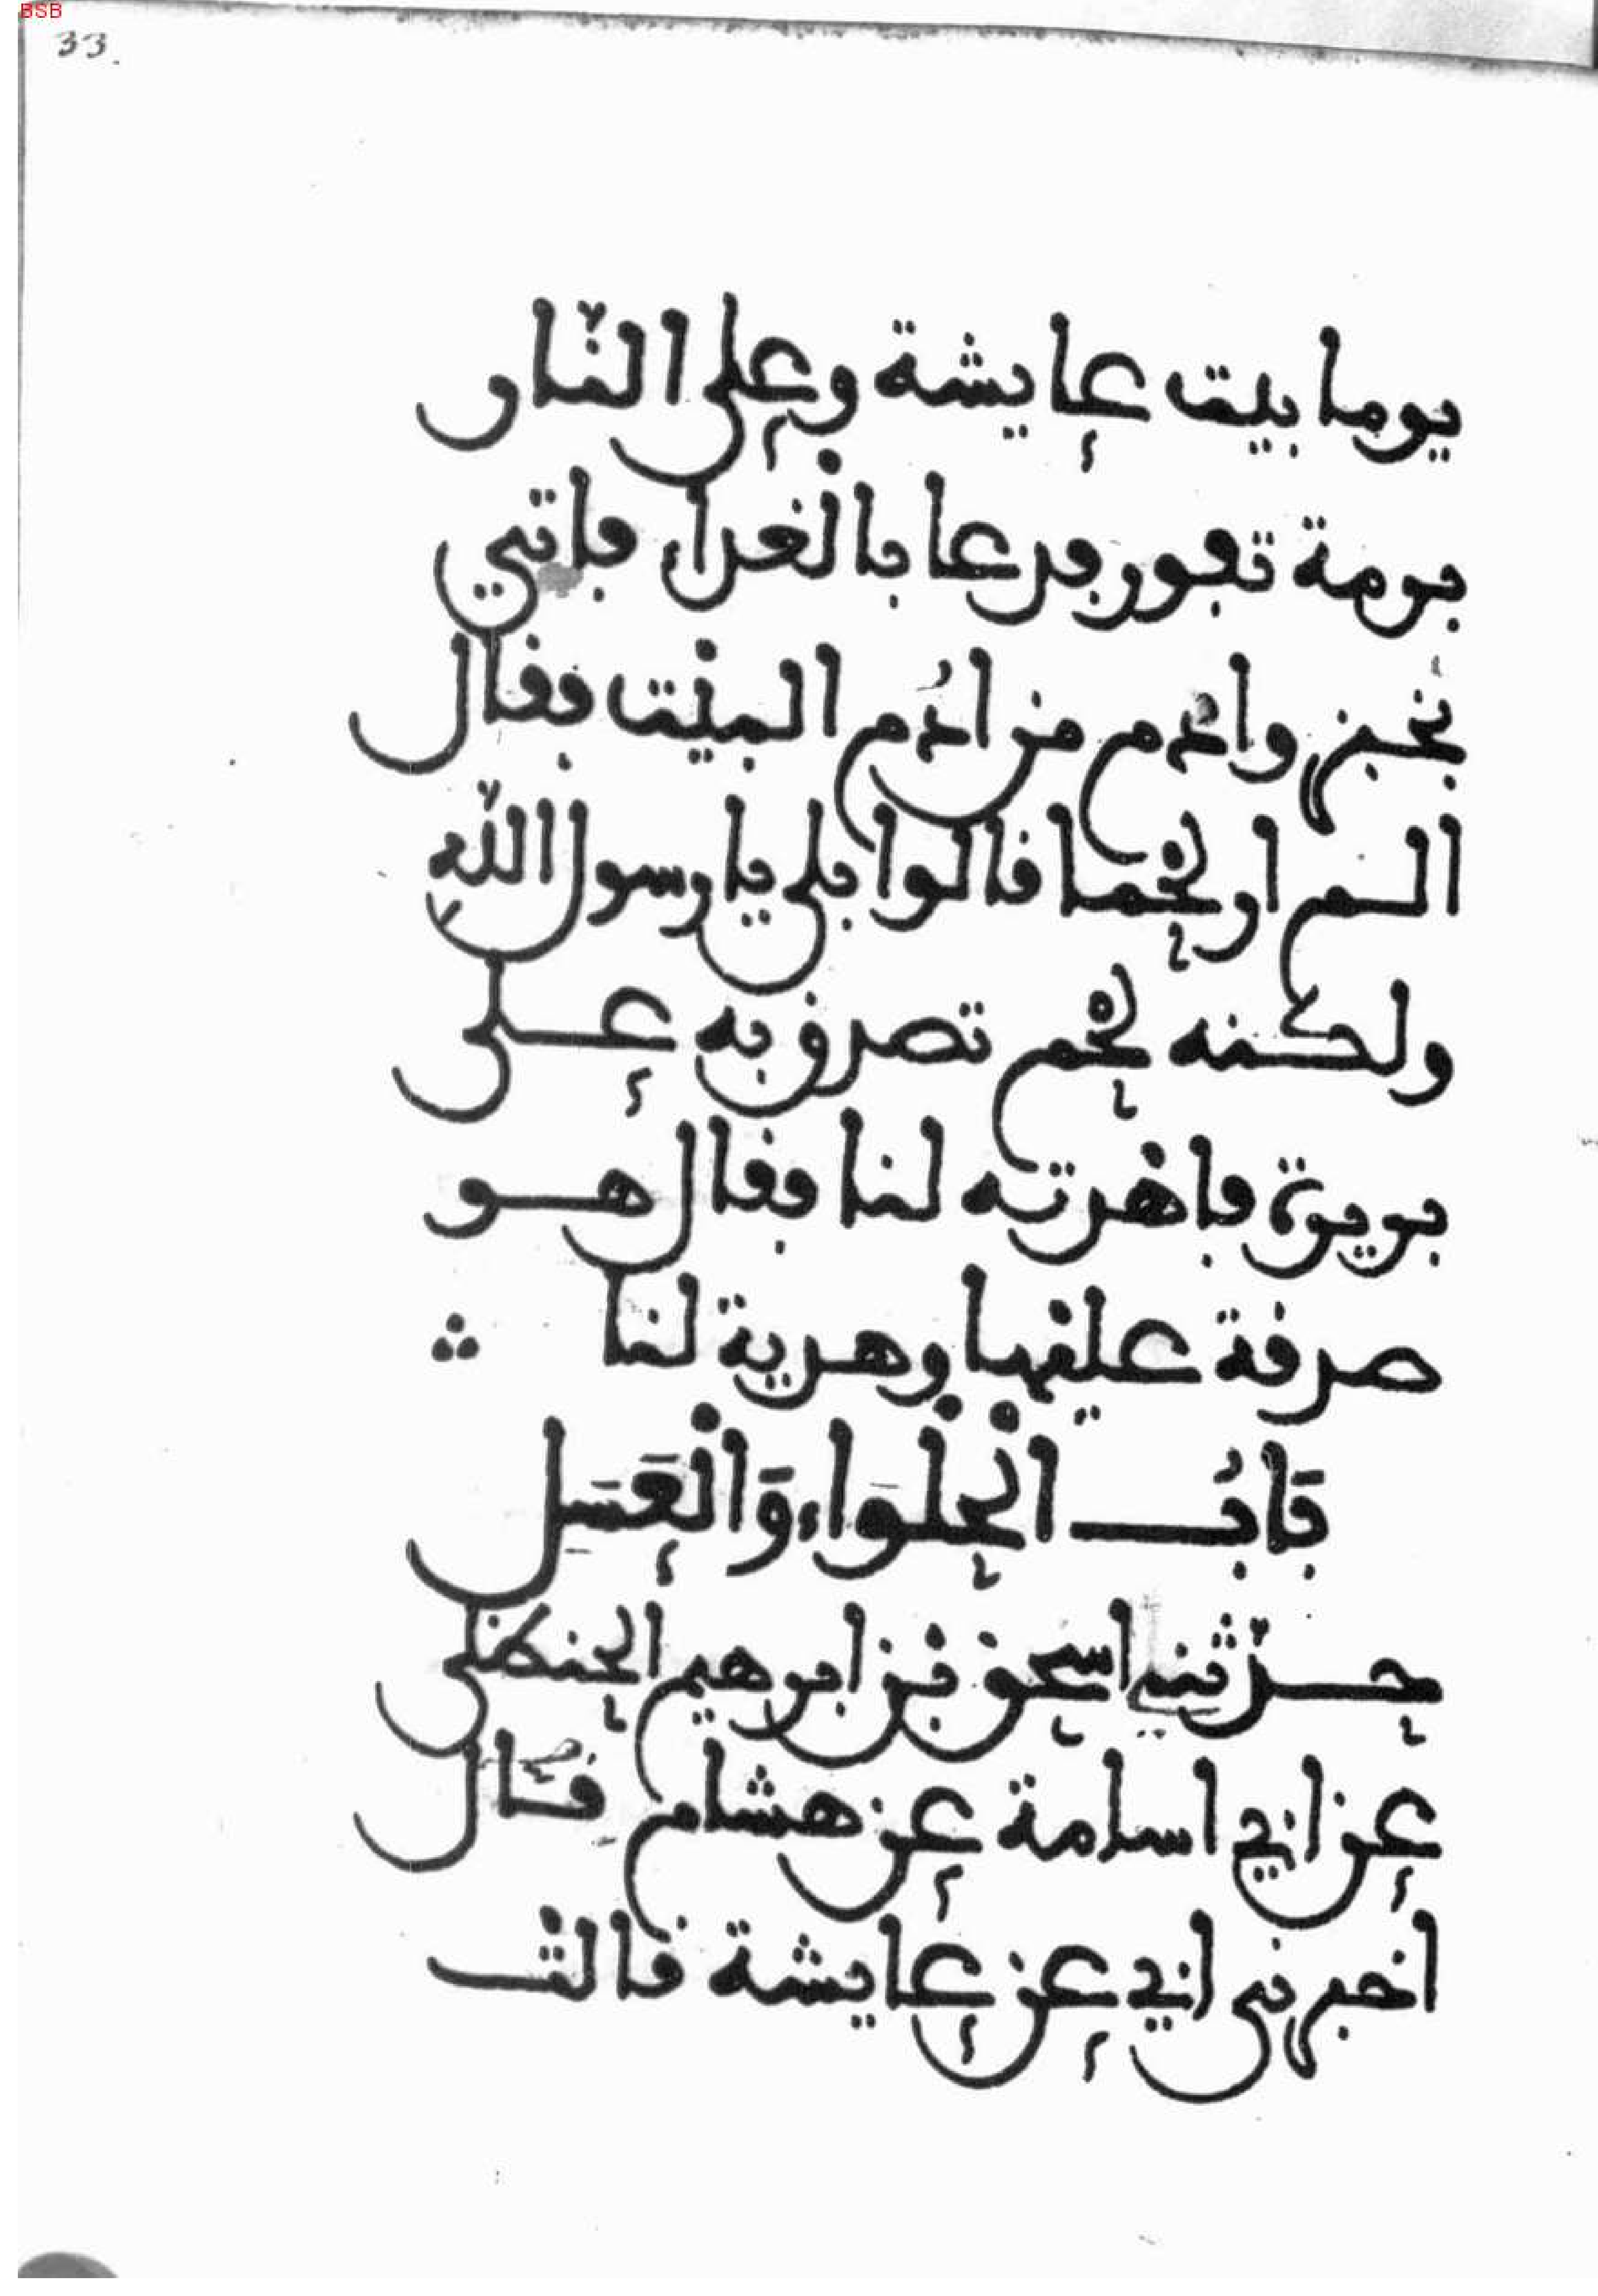 BSB
33.
يوما بيت عايشة وعلى النّار
برمة تفور فدعا بالغداء فاتي
بخبز وادم من ادُم البيْت فقال
الم ار لحْما قالوا بلى يا رسول اللّه
ولكنه لحْم تصدق به على
بريرة فاهْدته لنا فقال هو
صدقة عليْها وهدية لنا ؞
بَابُ الْحلْوَاء وَالْعَسَل
حدّثني اسحق بْن ابرهيم الحنظلي
عن ابي اسامة عن هشام قال
اخبرني ابي عن عايشة قالتْ